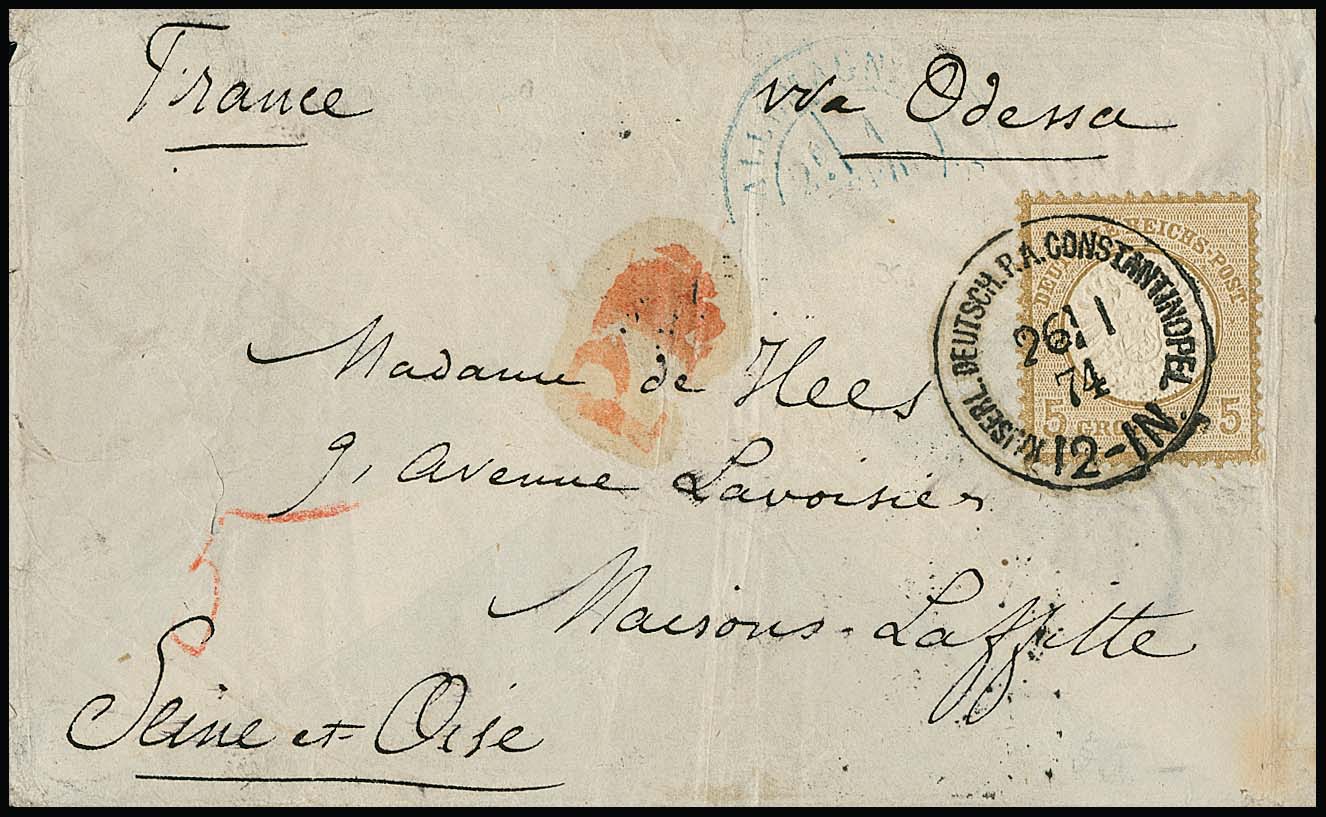 France
via Odessa
ALLEMAGNE
DEUTSCHE REICHS-POST
5 GRO 5
KAISERL. DEUTSCH. P. A. CONSTANTINOPEL.
26 1
74
12-1N.
Madame de Hees
9, Avenue Lavoisier
Maisons-Laffitte
5
Seine et Oise